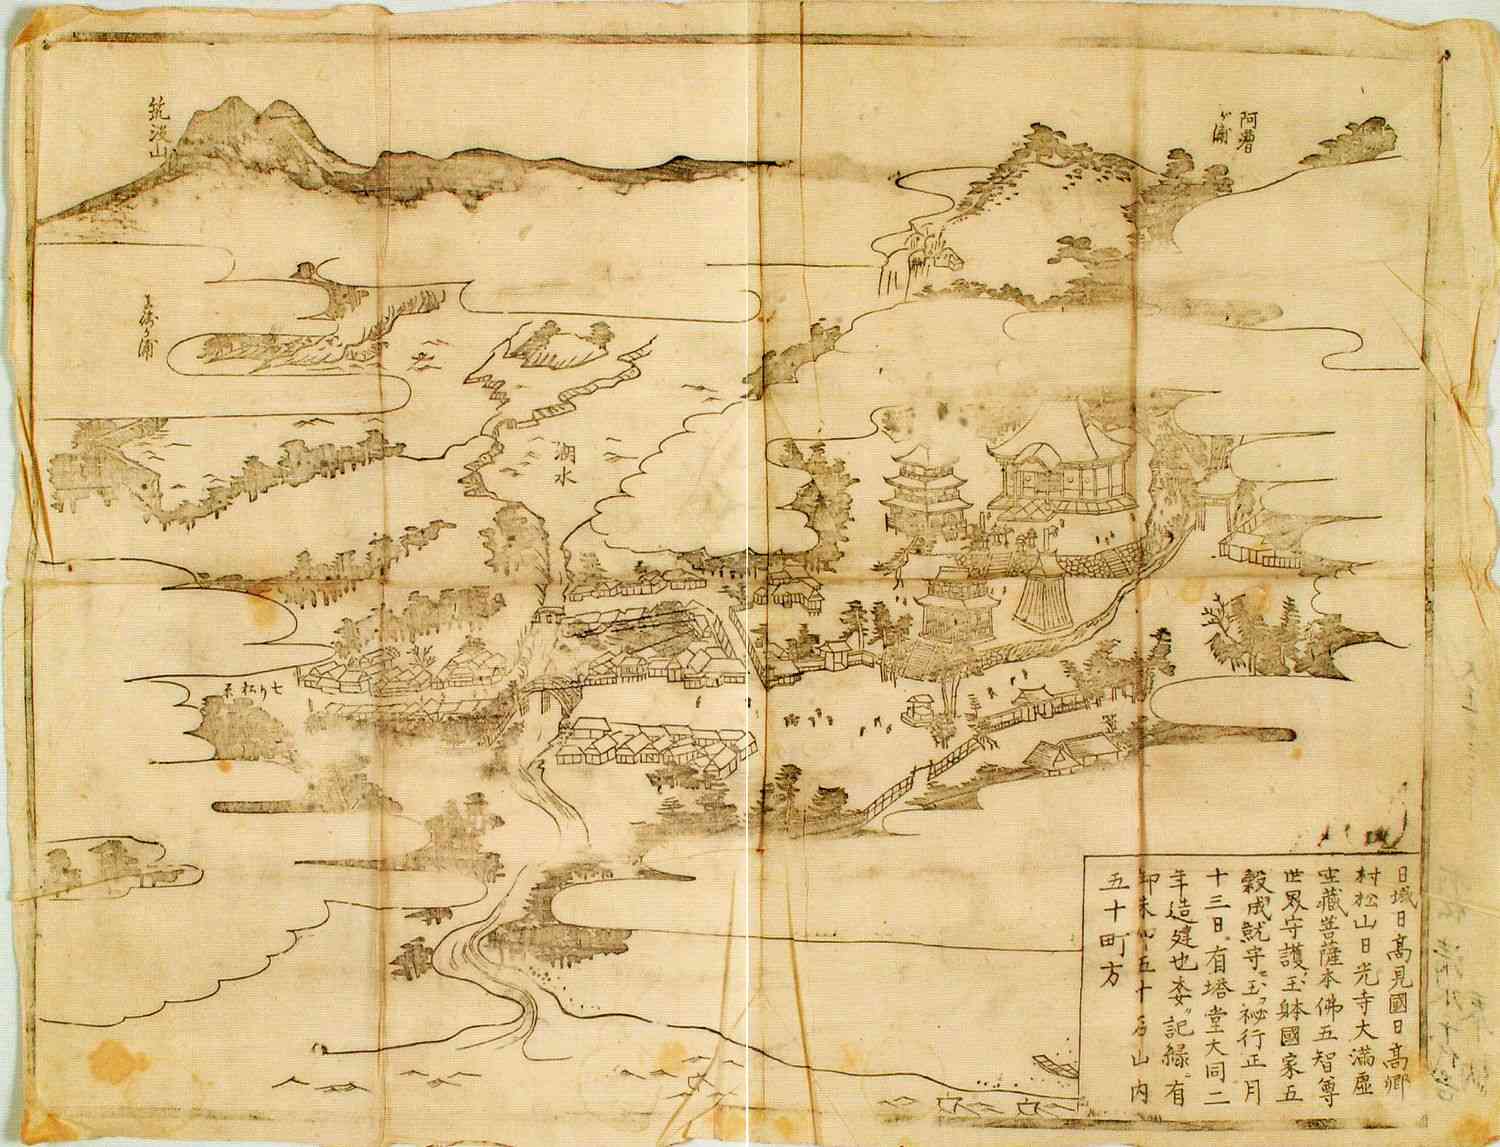 阿漕
ヶ浦
筑波山
真崎ヶ浦
湖水
七ツ松原
日域日髙見國日髙郷
村松山日光寺大満虚
空藏菩薩本佛五智尊
世界守護玉躰國家五
穀成就守玉祕行正月
十三日有塔堂大同二
年造建也委記録有
御朱山五十石山内
五十町方